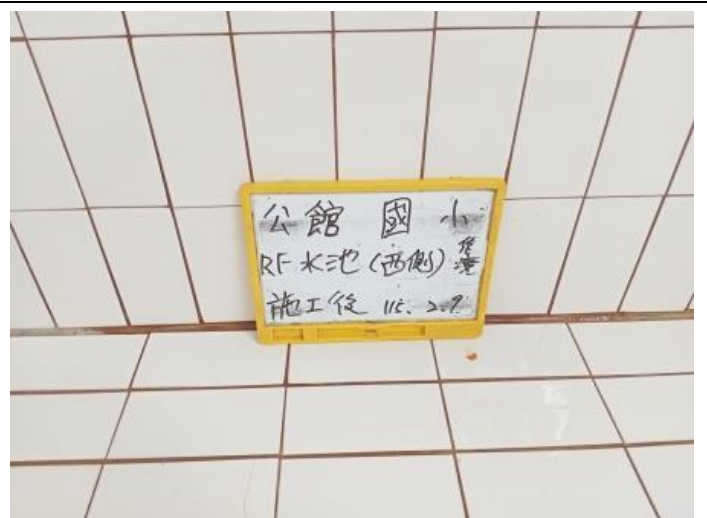 公館 國小
RF 水池 (西側)
施工後 115. 2.9.